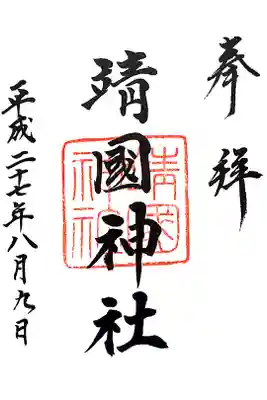 奉拝
靖國神社
平成二十七年八月九日